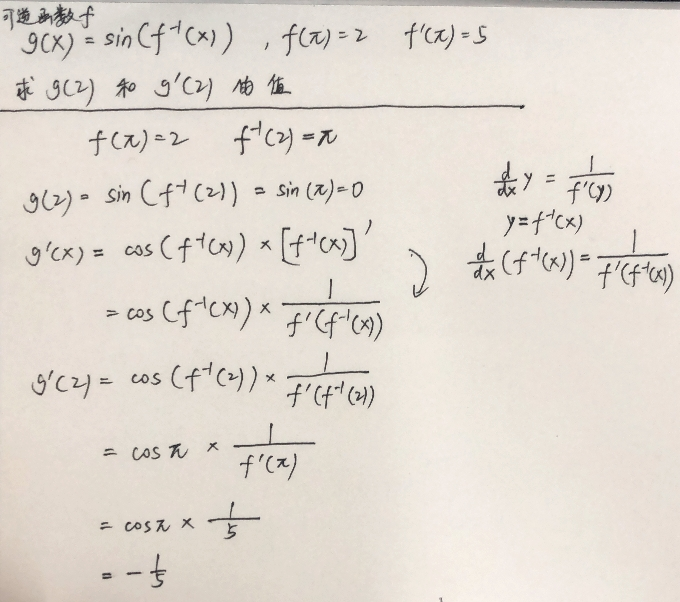 可逆函数f
g(x) = sin(f⁻¹(x)) , f(π)=2 f'(π)=5
求 g(2) 和 g'(2) 的值
f(π)=2 f⁻¹(2)=π
g(2) = sin(f⁻¹(2)) = sin(π)=0
g'(x) = cos(f⁻¹(x)) × [f⁻¹(x)]'
= cos(f⁻¹(x)) × 1/f'(f⁻¹(x))
g'(2) = cos(f⁻¹(2)) × 1/f'(f⁻¹(2))
= cosπ × 1/f'(π)
= cosπ × 1/5
= -1/5
d/dx y = 1/f'(y)
y=f⁻¹(x)
d/dx (f⁻¹(x)) = 1/f'(f⁻¹(x))